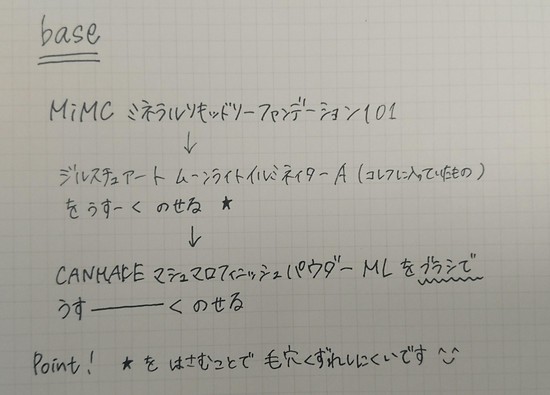 base
MiMC ミネラルリキッドリーファンデーション101
↓
ジルスチュアート ムーンライトイルミネイターA (コレフに入っていたもの)
を うすーく のせる ★
↓
CANMAKE マシュマロフィニッシュパウダー ML を ブラシで
うす———く のせる
Point! ★を はさむことで 毛穴くずれしにくいです